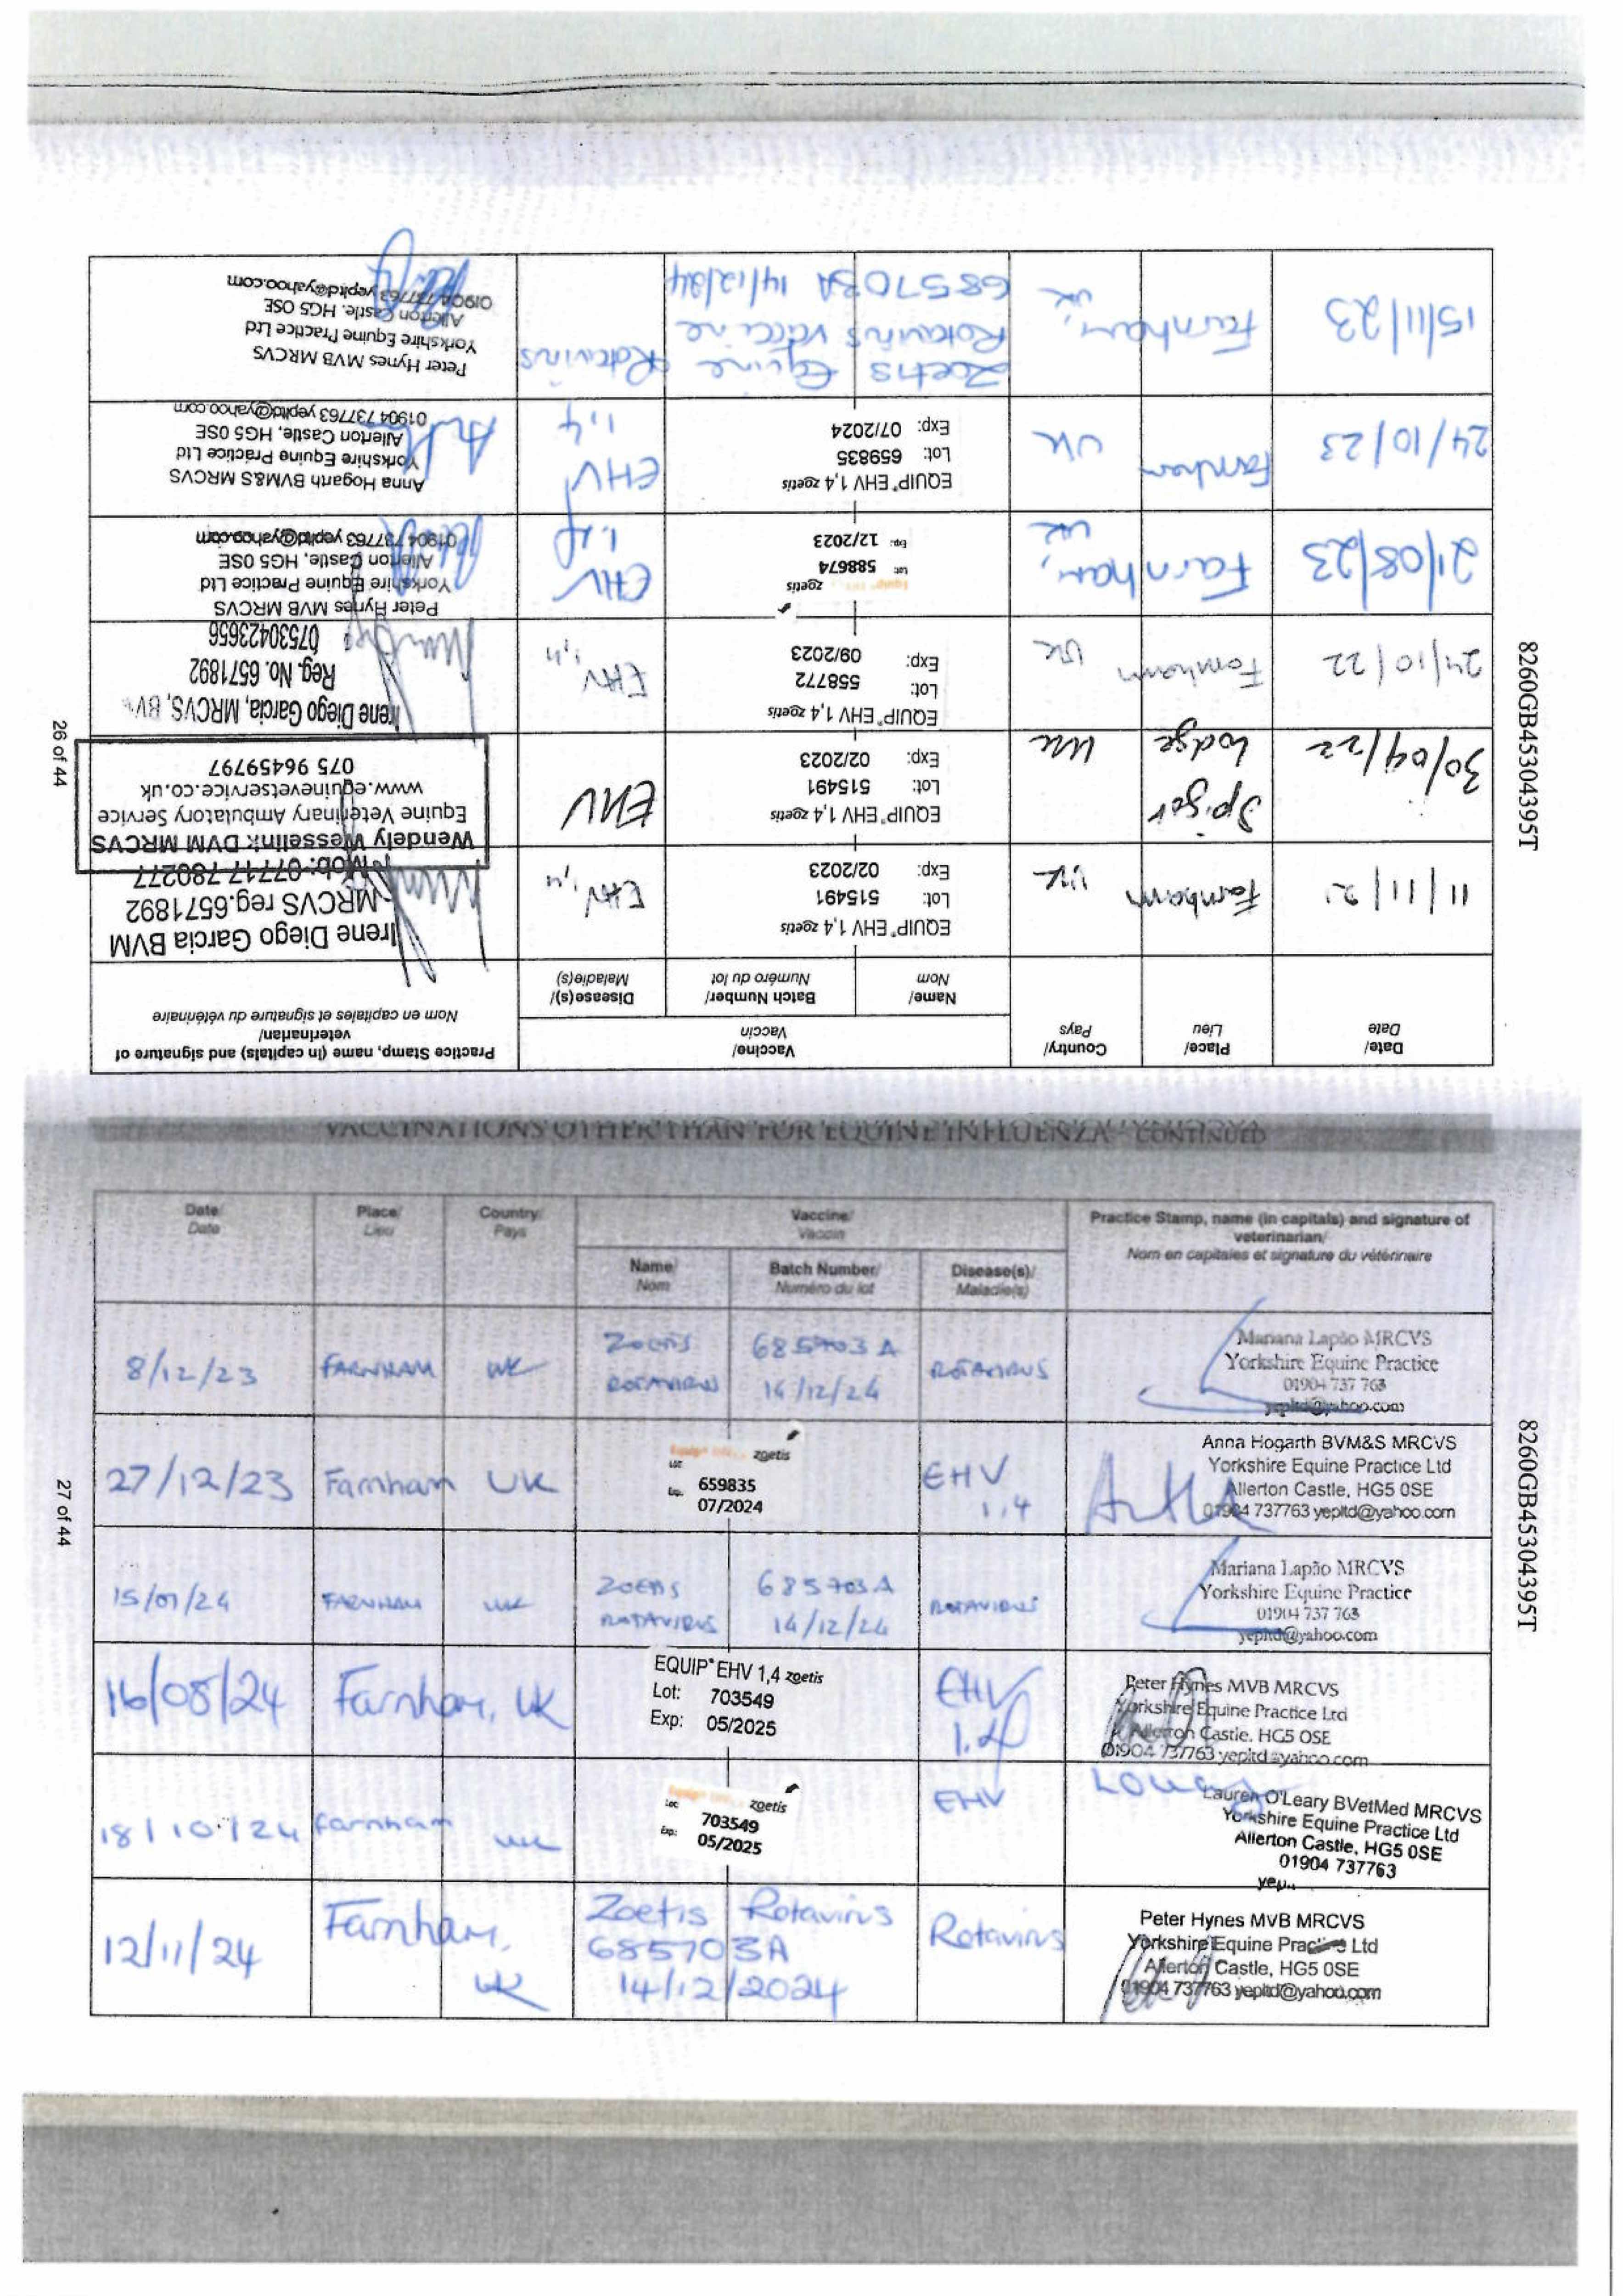 26 of 44
8260GB45304395T
Date/
Date
Place/
Lieu
Country/
Pays
Vaccine/
Vaccin
Name/
Nom
Batch Number/
Numéro du lot
Disease(s)/
Maladie(s)
Practice Stamp, name (in capitals) and signature of
veterinarian/
Nom en capitales et signature du vétérinaire
11/11/21
Farnham
UK
EQUIP® EHV 1,4 zoetis
Lot: 515491
Exp: 02/2023
EHV 1,4
Irene Diego Garcia BVM
MRCVS reg.6571892
Mob: 07717 780277
30/04/22
Spiger
Lodge
UK
EQUIP® EHV 1,4 zoetis
Lot: 515491
Exp: 02/2023
EHV
Wendely Wesselink DVM MRCVS
Equine Veterinary Ambulatory Service
www.equinevetservice.co.uk
075 96459797
24/10/22
Farnham
UK
EQUIP® EHV 1,4 zoetis
Lot: 558772
Exp: 09/2023
EHV 1,4
Irene Diego Garcia, MRCVS, BV
Reg. No. 6571892
07530423656
21/08/23
Farnham,
UK
zoetis
Lot: 588674
Exp: 12/2023
EHV
1.4
Peter Hynes MVB MRCVS
Yorkshire Equine Practice Ltd
Allerton Castle, HG5 0SE
01904 737763 yepltd@yahoo.com
24/10/23
Farnham
UK
EQUIP® EHV 1,4 zoetis
Lot: 659835
Exp: 07/2024
EHV
1,4
Anna Hogarth BVM&S MRCVS
Yorkshire Equine Practice Ltd
Allerton Castle, HG5 0SE
01904 737763 yepltd@yahoo.com
15/11/23
Farnham,
UK
Zoetis Equine
Rotavirus vaccine
685703A 14/12/24
Rotavirus
Peter Hynes MVB MRCVS
Yorkshire Equine Practice Ltd
Allerton Castle, HG5 0SE
01904 737763 yepltd@yahoo.com
VACCINATIONS OTHER THAN FOR EQUINE INFLUENZA - CONTINUED
27 of 44
8260GB45304395T
Date/
Date
Place/
Lieu
Country/
Pays
Vaccine/
Vaccin
Name/
Nom
Batch Number/
Numéro du lot
Disease(s)/
Maladie(s)
Practice Stamp, name (in capitals) and signature of
veterinarian/
Nom en capitales et signature du vétérinaire
8/12/23
FARNHAM
UK
ZOETIS
ROTAVIRUS
685703A
14/12/24
ROTAVIRUS
Mariana Lapão MRCVS
Yorkshire Equine Practice
01904 737 763
yepltd@yahoo.com
27/12/23
Farnham
UK
zoetis
Lot:
659835
Exp.
07/2024
EHV
1,4
Anna Hogarth BVM&S MRCVS
Yorkshire Equine Practice Ltd
Allerton Castle, HG5 0SE
01904 737763 yepltd@yahoo.com
15/01/24
FARNHAM
UK
ZOETIS
ROTAVIRUS
685703A
14/12/24
ROTAVIRUS
Mariana Lapão MRCVS
Yorkshire Equine Practice
01904 737 763
yepltd@yahoo.com
16/08/24
Farnham, UK
EQUIP® EHV 1,4 zoetis
Lot: 703549
Exp: 05/2025
EHV
1.4
Peter Hynes MVB MRCVS
Yorkshire Equine Practice Ltd
Allerton Castle, HG5 0SE
01904 737763 yepltd@yahoo.com
18/10/24
Farnham
UK
zoetis
Lot:
703549
Exp:
05/2025
EHV
Lauren O'Leary BVetMed MRCVS
Yorkshire Equine Practice Ltd
Allerton Castle, HG5 0SE
01904 737763
12/11/24
Farnham,
UK
Zoetis Rotavirus
685703A
14/12/2024
Rotavirus
Peter Hynes MVB MRCVS
Yorkshire Equine Practice Ltd
Allerton Castle, HG5 0SE
01904 737763 yepltd@yahoo.com